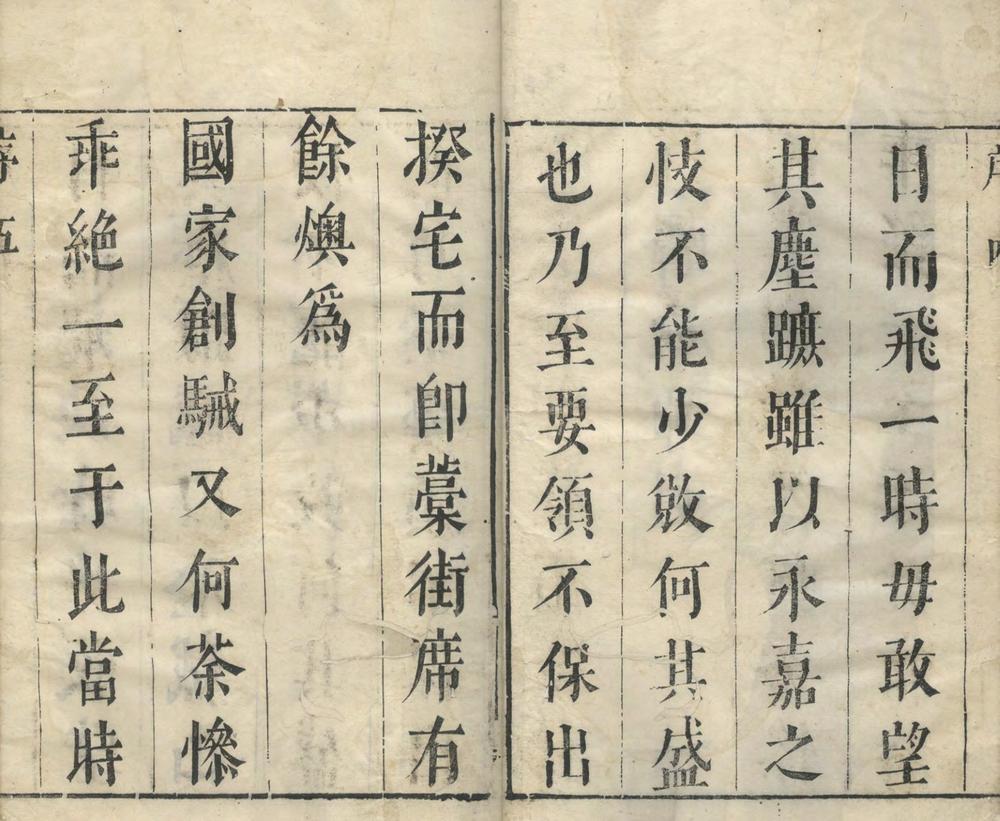 日而飛一時毋敢望
其塵蹠雖以永嘉之
忮不能少敚何其盛
也乃至要領不保出
揆宅而卽藁街席有
餘燠爲
國家創駴又何荼慘
乖絶一至于此當時
五